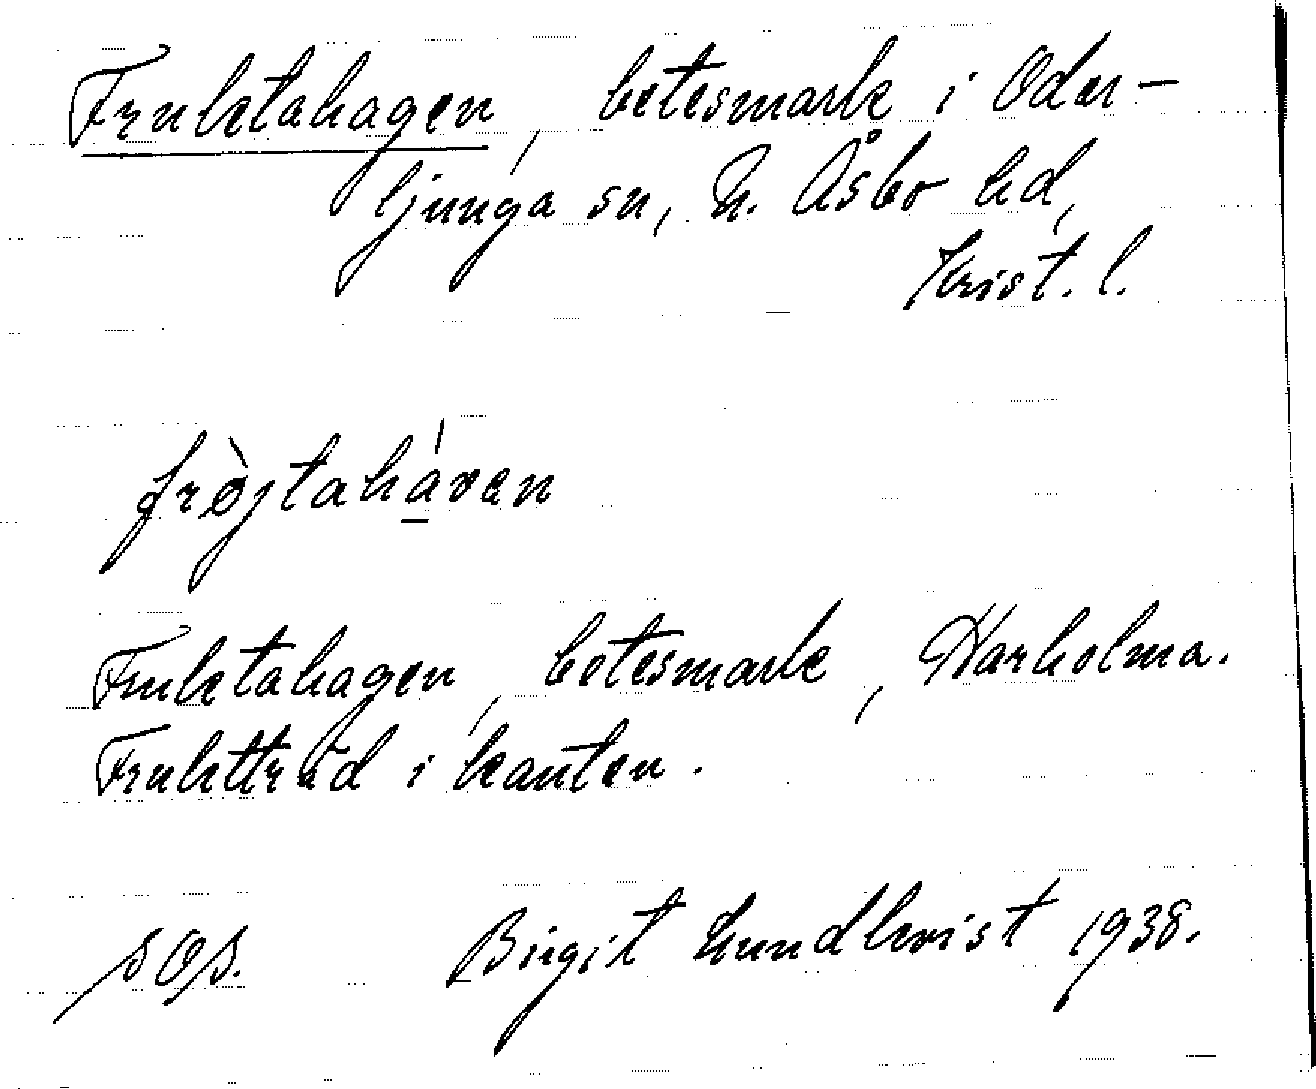 Fruktahagen, betesmark i Oder-
ljunga sn, N. Åsbo hd,
Krist. l.
frò̀jtahá̱ven
Fruktahagen, betesmark, Harholma.
Fruktträd i kanten.
SOS. Birgit Lundkvist 1938.